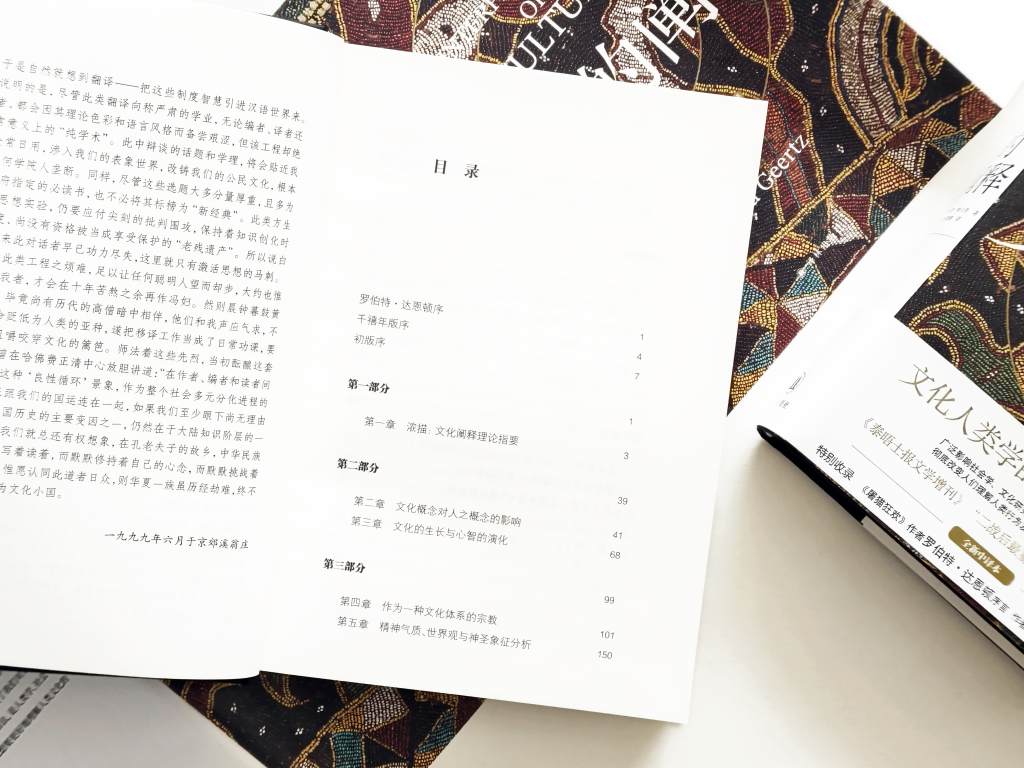 于是自然就想到翻译——把这些制度智慧引进汉语世界来。
说明的是，尽管此类翻译向称严肃的学业，无论编者、译者还
者，都会因其理论色彩和语言风格而备尝艰涩，但该工程却绝
意义上的“纯学术”。此中辩谈的话题和学理，将会贴近我
常日用，渗入我们的表象世界，改铸我们的公民文化，根本
何学院人垄断。同样，尽管这些选题大多分量厚重，且多为
府指定的必读书，也不必将其标榜为“新经典”。此类方生
思想实验，仍要应付尖刻的批判围攻，保持着知识创化时
度，尚没有资格被当成享受保护的“老残遗产”。所以说白
来此对话者早已功力尽失，这里就只有激活思想的马刺。
此类工程之烦难，足以让任何聪明人望而却步，大约也惟
我者，才会在十年苦熬之余再作冯妇。然则晨钟暮鼓黄
毕竟尚有历代的高僧暗中相伴，他们和我声应气求，不
贬低为人类的亚种，遂把移译工作当成了日常功课，要
嚼咬穿文化的篱笆。师法着这些先烈，当初酝酿这套
曾在哈佛费正清中心放胆讲道：“在作者、编者和读者间
这种‘良性循环’景象，作为整个社会多元分化进程的
跟我们的国运连在一起，如果我们至少眼下尚无理由
国历史的主要变因之一，仍然在于大陆知识阶层的一
我们就总还有权想象，在孔老夫子的故乡，中华民族
写着读着，而默默修持着自己的心念，而默默挑战着
惟愿认同此道者日众，则华夏一族虽历经劫难，终不
为文化小国。
一九九九年六月于京郊溪翁庄
目 录
罗伯特·达恩顿序 1
千禧年版序 4
初版序 7
第一部分 1
第一章 浓描：文化阐释理论指要 3
第二部分 39
第二章 文化概念对人之概念的影响 41
第三章 文化的生长与心智的演化 68
第三部分 99
第四章 作为一种文化体系的宗教 101
第五章 精神气质、世界观与神圣象征分析 150
OF
阐
Geertz
释
文化人类学
广泛影响社会学、文化研
彻底改变人们理解人类行为
《泰晤士报文学增刊》“二战后最
特别收录
《屠猫狂欢》作者罗伯特·达恩顿序言
全新中译本